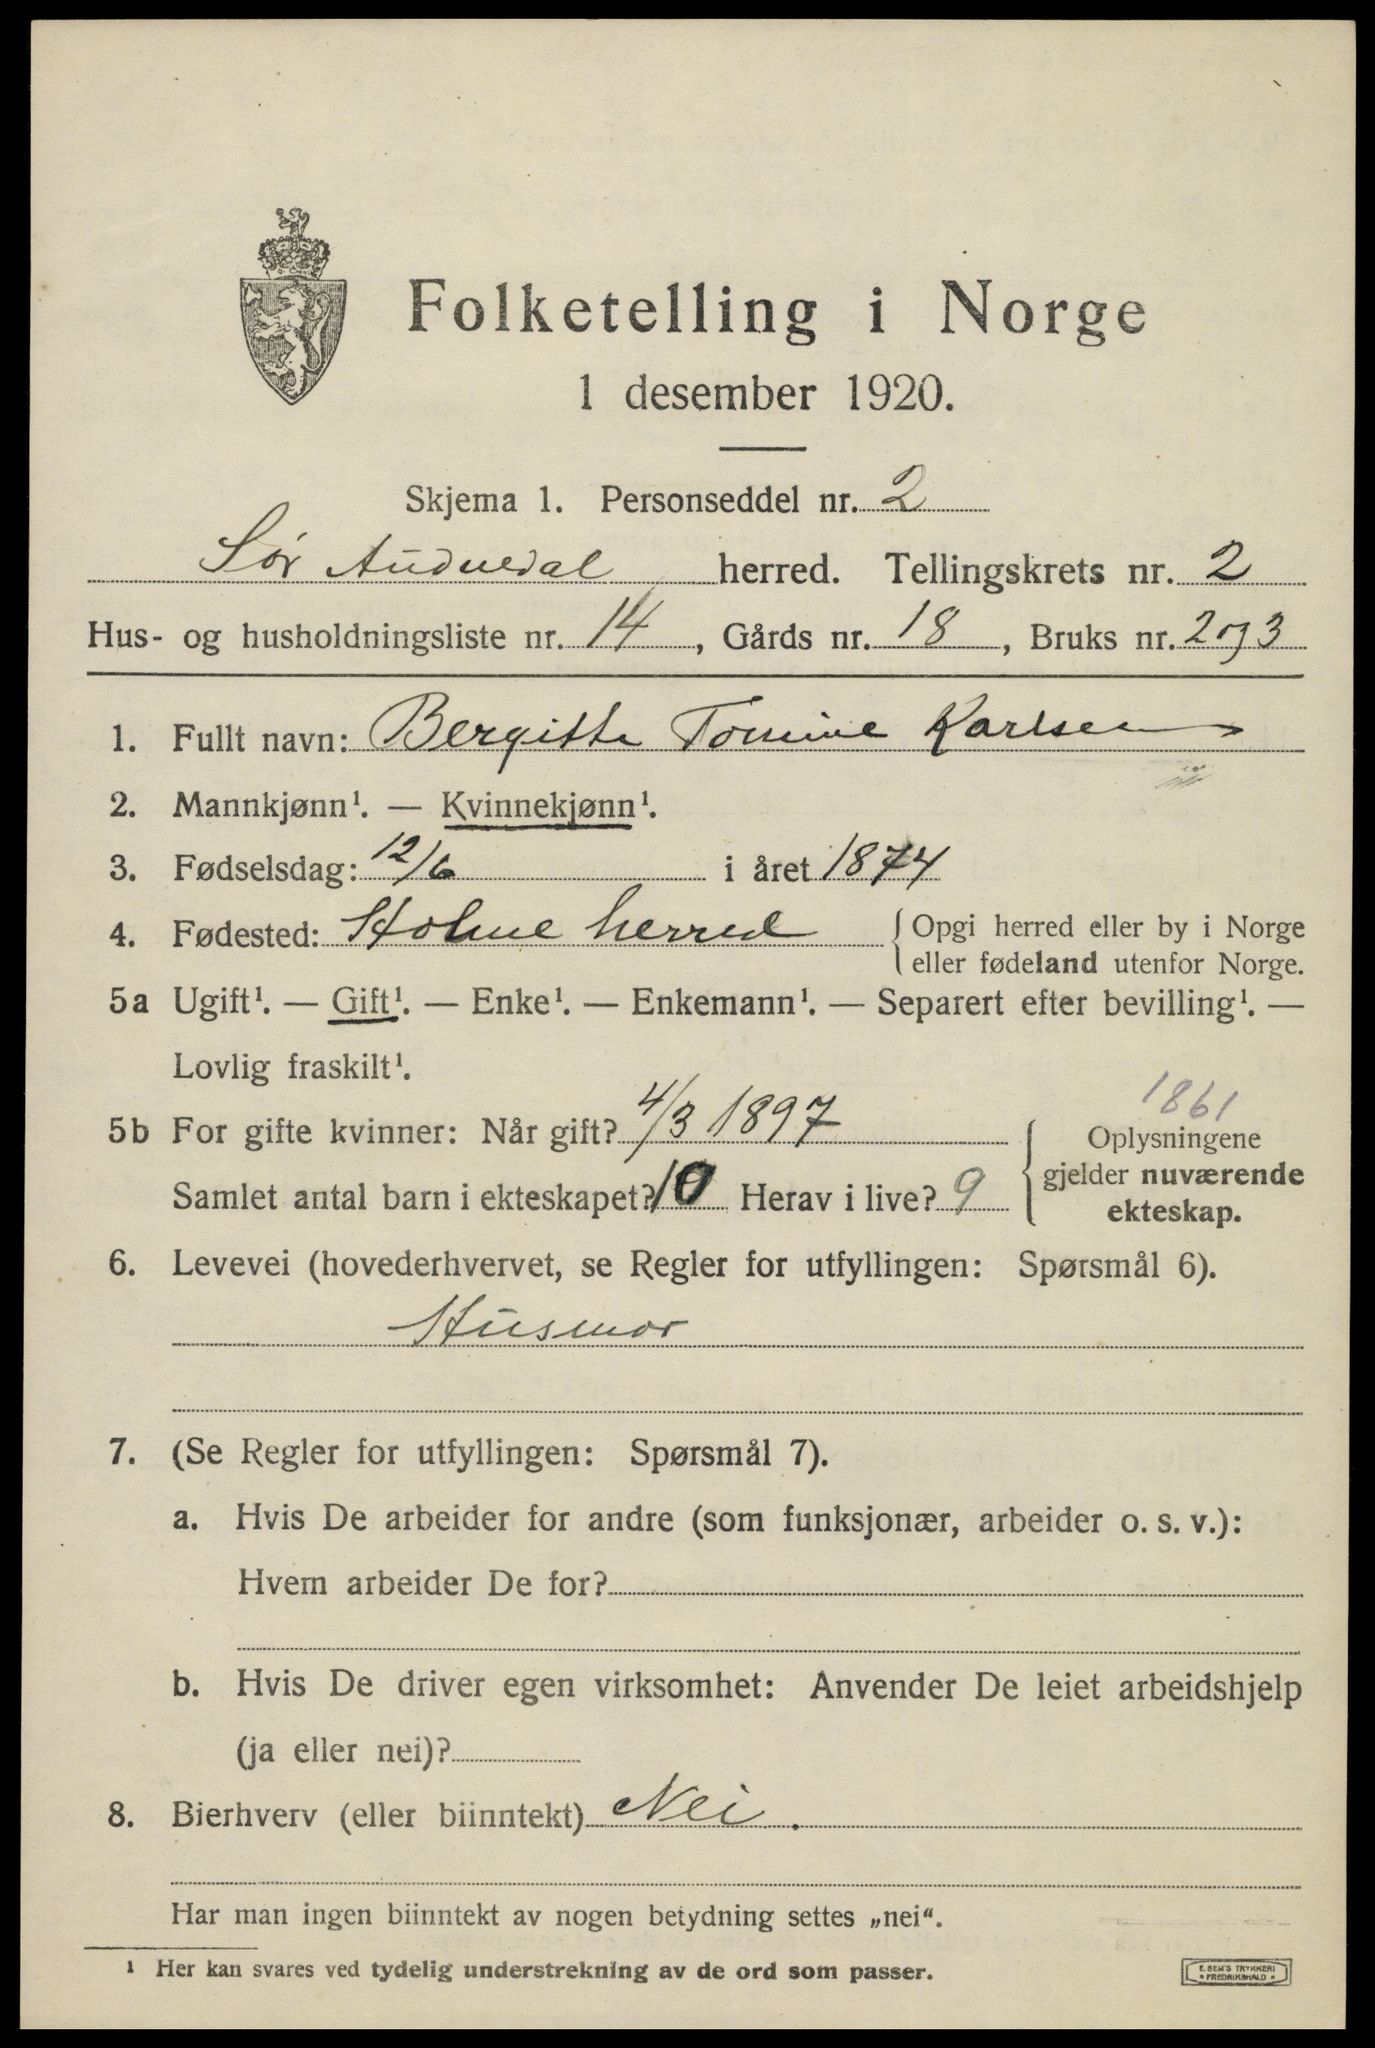 Folketelling i Norge
1 desember 1920.
Skjema 1. Personseddel nr. 2
Sør Audnedal herred. Tellingskrets nr. 2
Hus- og husholdningsliste nr. 14, Gårds nr. 18, Bruks nr. 2 og 3
1. Fullt navn: Bergitte Tomine Karlsen
2. Mannkjønn¹. — Kvinnekjønn¹.
3. Fødselsdag: 12/6 i året 1874
4. Fødested: Holme herred { Opgi herred eller by i Norge
eller fødeland utenfor Norge.
5a Ugift¹. — Gift¹. — Enke¹. — Enkemann¹. — Separert efter bevilling¹. —
Lovlig fraskilt¹.
1861
5b For gifte kvinner: Når gift? 4/3 1897 { Oplysningene
gjelder nuværende
Samlet antal barn i ekteskapet? 10 Herav i live? 9
ekteskap.
6. Levevei (hovederhvervet, se Regler for utfyllingen: Spørsmål 6).
Husmor
7. (Se Regler for utfyllingen: Spørsmål 7).
a. Hvis De arbeider for andre (som funksjonær, arbeider o. s. v.):
Hvem arbeider De for?
b. Hvis De driver egen virksomhet: Anvender De leiet arbeidshjelp
(ja eller nei)?
8. Bierhverv (eller biinntekt) Nei.
Har man ingen biinntekt av nogen betydning settes „nei“.
¹ Her kan svares ved tydelig understrekning av de ord som passer.
E. SEM'S TRYKKERI
* FREDRIKSHALD *